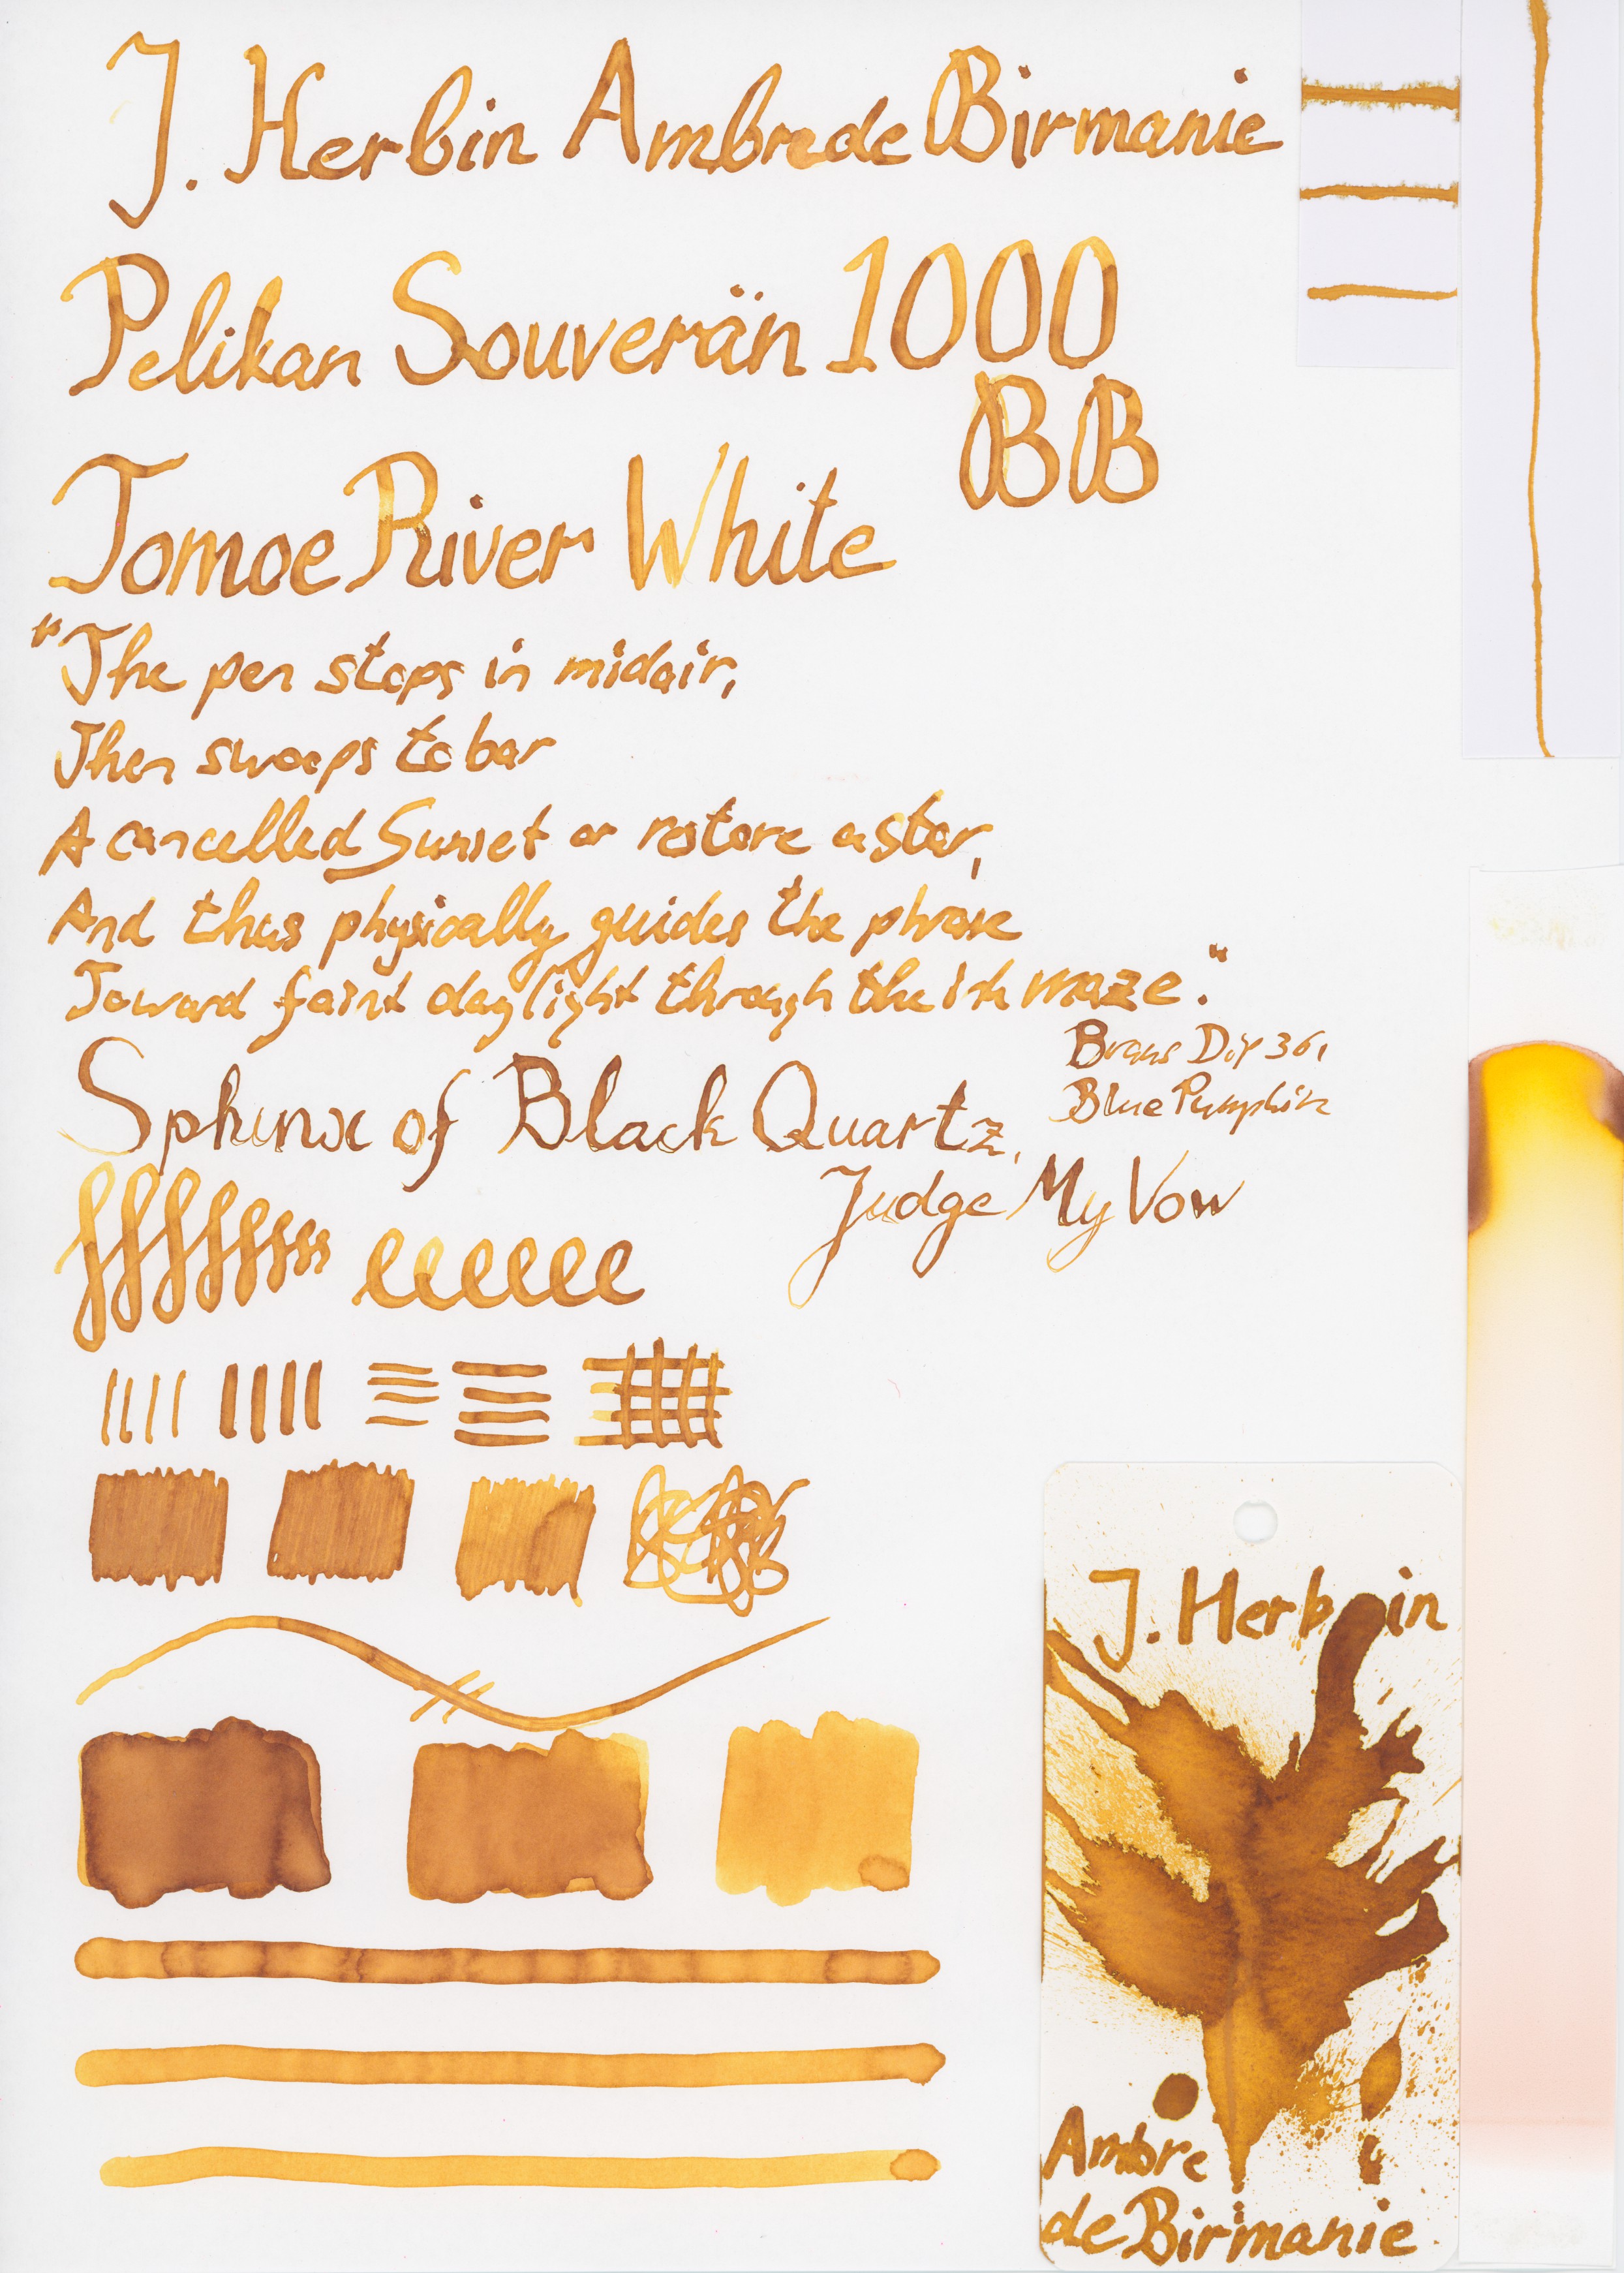 J. Herbin Ambre de Birmanie
Pelikan Souverän 1000
BB
Tomoe River White
"The pen stops in midair,
Then swoops to bar
A cancelled Sunset or restore a star,
And thus physically guides the phrase
Toward faint daylight through the ink maze."
Brause 361
Blue Pumpkin
Sphinx of Black Quartz,
Judge My Vow
J. Herbin
Ambre
de Birmanie